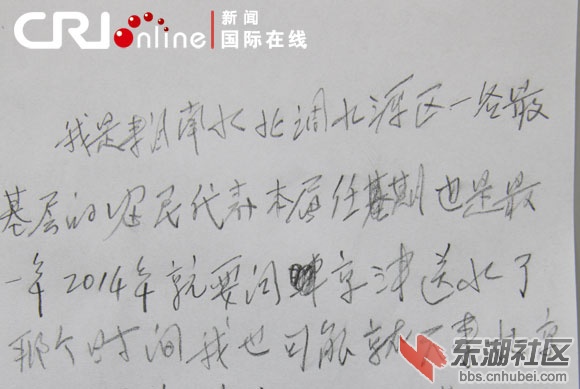 CRI online 新闻
国际在线
我是来自南水北调水源区一名最
基层的农民代表本届任期也是最
一年2014年就要向京津送水了
那个时间我也可能就不来北京
东湖社区
bbs.cnhubei.com